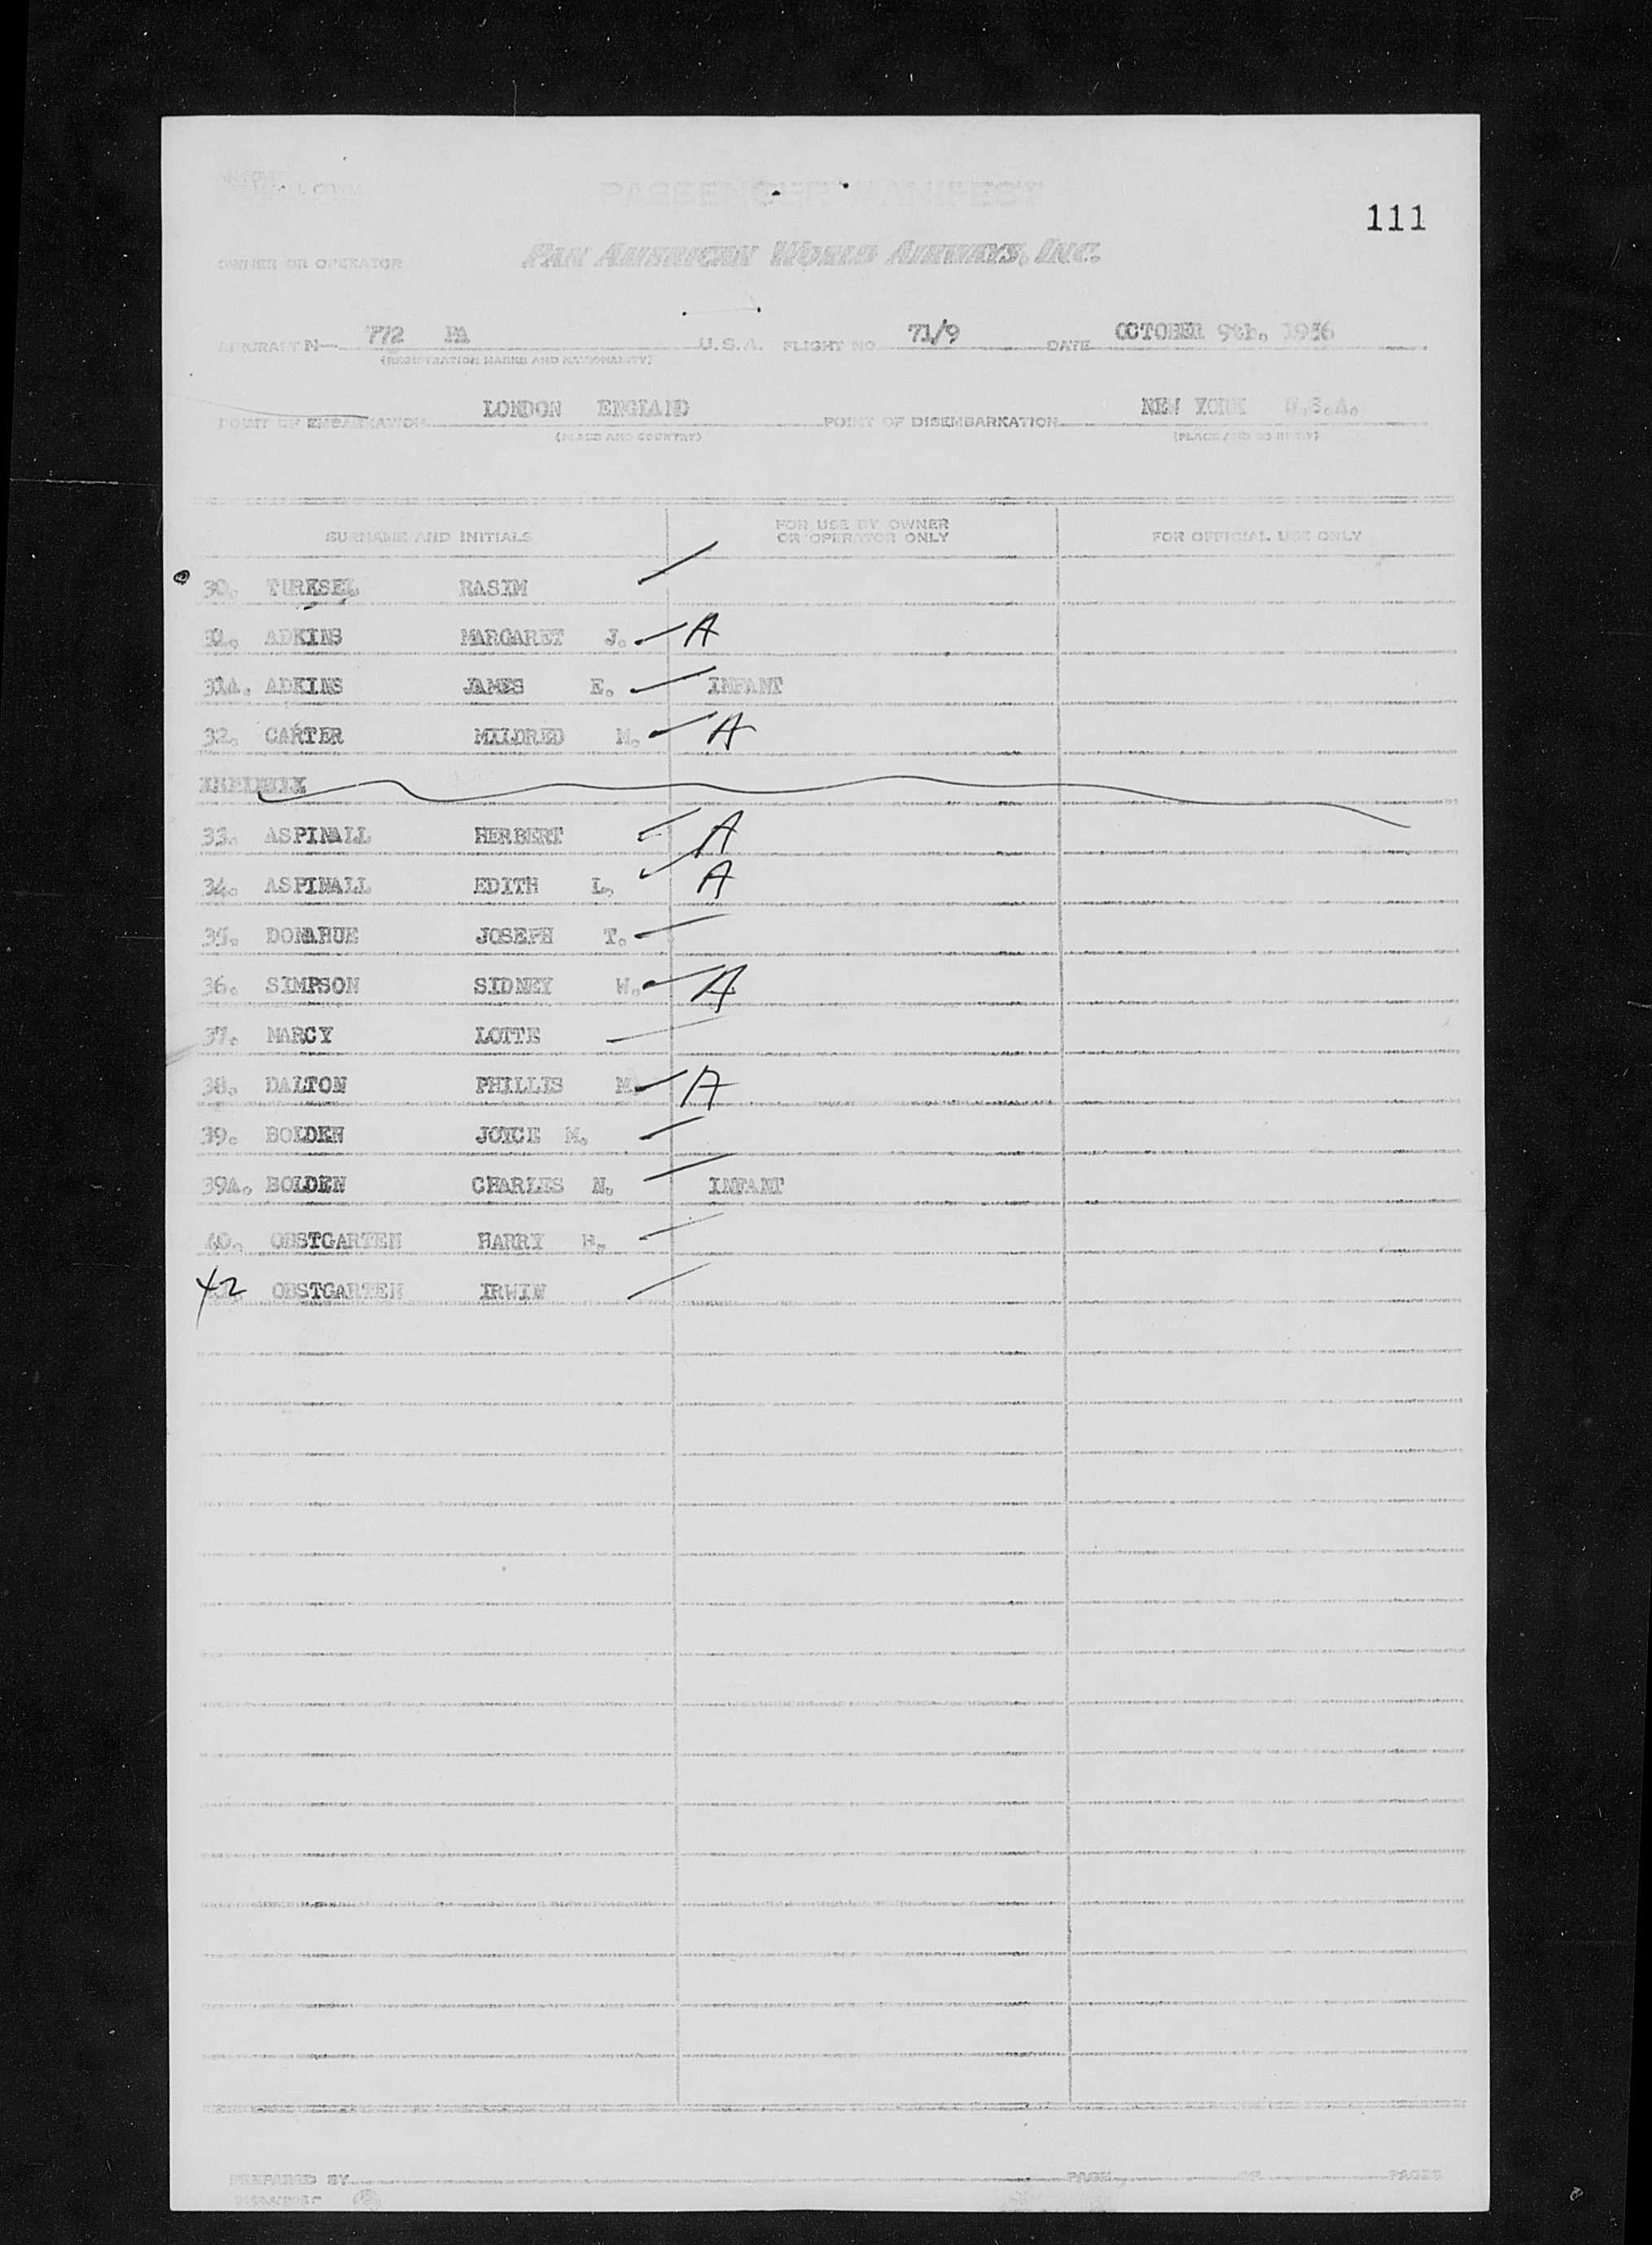 PASSENGER MANIFEST
111
OWNER OR OPERATOR PAN AMERICAN WORLD AIRWAYS, INC.
AIRCRAFT N— 772 PA U.S.A. FLIGHT NO. 71/9 DATE OCTOBER 9th, 1956
(REGISTRATION MARKS AND NATIONALITY)
POINT OF EMBARKATION LONDON ENGLAND POINT OF DISEMBARKATION NEW YORK U.S.A.
(PLACE AND COUNTRY) (PLACE AND COUNTRY)
SURNAME AND INITIALS FOR USE BY OWNER OR OPERATOR ONLY FOR OFFICIAL USE ONLY
30. TURKSEL RASIM
31. ADKINS MARGARET J. A
31A. ADKINS JAMES E. INFANT
32. CARTER MILDRED M. A
33. ASPINALL HERBERT A
34. ASPINALL EDITH L. A
35. DONAHUE JOSEPH T.
36. SIMPSON SIDNEY W. A
37. MARCY LOTTE
38. DALTON PHILLIS M. A
39. BOLDEN JOYCE M.
39A. BOLDEN CHARLES N. INFANT
40. OBSTGARTEN HARRY H.
42 OBSTGARTEN IRWIN
PREPARED BY PAGE OF PAGES